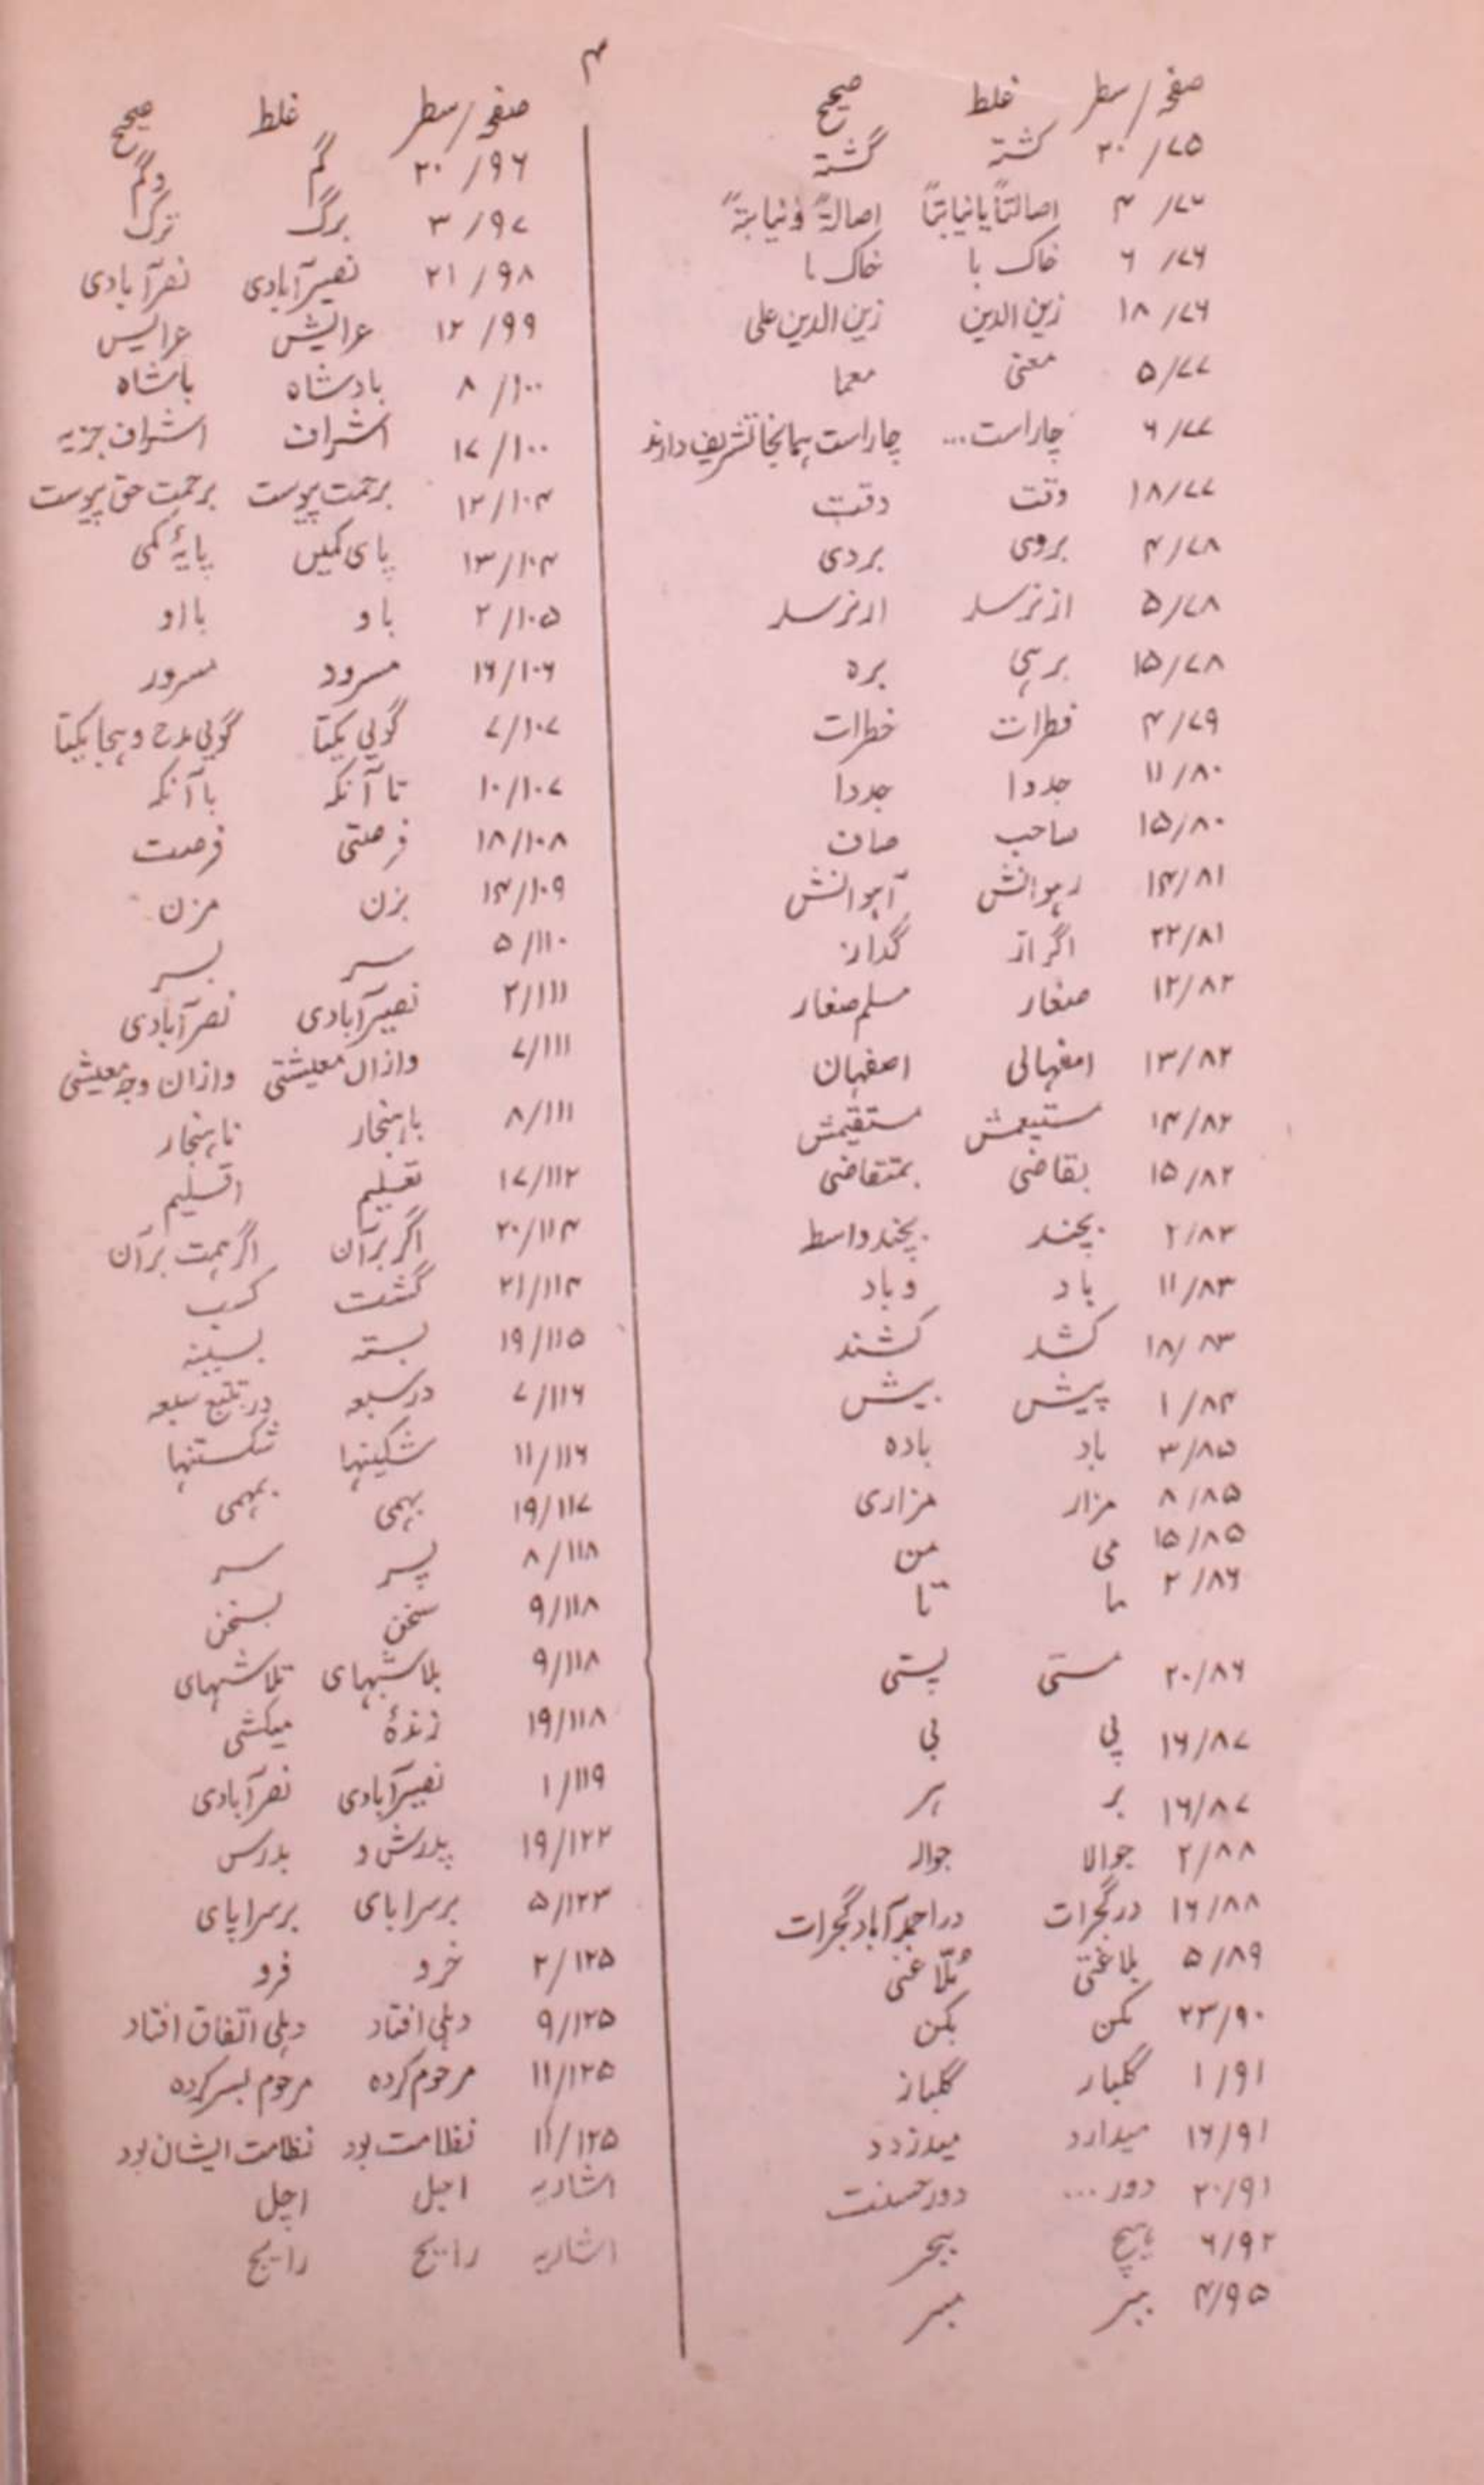 ۴
صفحہ/سطر غلط صحیح
۷۵/۲۰ کشتہ گشتہ
۷۶/۴ اصالتاً یا نیابتاً اصالۃً و نیابتہً
۷۶/۶ خاک با خاک ما
۷۶/۱۸ زین الدین زین الدین علی
۷۷/۵ معنی معما
۷۷/۶ چاراست... چاراست ہمانجا تشریف دارند
۷۷/۱۸ وقت دقت
۷۸/۴ بروی بردی
۷۸/۵ ازنرسد ارنرسد
۷۸/۱۵ برہی برہ
۷۹/۴ قطرات خطرات
۸۰/۱۱ جدوا جدوا
۸۰/۱۵ صاحب صاف
۸۱/۱۴ رہوانش آہوانش
۸۱/۲۲ اگراز گداز
۸۲/۱۲ صغار مسلم صغار
۸۲/۱۳ اصفہانی اصفہان
۸۲/۱۴ ستیعمش مستقیمش
۸۲/۱۵ بقاضی بمتقاضی
۸۳/۲ بچند بچند واسط
۸۳/۱۱ باد وباد
۸۳/۱۸ کشد کشند
۸۴/۱ پیش بیش
۸۵/۳ باد بادہ
۸۵/۸ مزار مزاری
۸۵/۱۵ می من
۸۶/۲ ما تا
۸۶/۲۰ مستی پستی
۸۷/۱۶ پی بی
۸۷/۱۶ بر ہر
۸۸/۲ جوالا جوالہ
۸۸/۱۶ درگجرات دراحمدآباد گجرات
۸۹/۵ بلاغتی مُلّا غنی
۹۰/۲۳ کمن بکن
۹۱/۱ گلبار گلباز
۹۱/۱۶ میدارد میدزدد
۹۱/۲۰ دور... دور حسنت
۹۲/۶ بحر
۹۵/۴
صفحہ/سطر غلط صحیح
۹۶/۲۰ گم وگم
۹۷/۳ برگ ترک
۹۸/۲۱ نصیرآبادی نصرآبادی
۹۹/۱۲ عرائش عرائس
۱۰۰/۸ بادشاہ باشاہ
۱۰۰/۱۷ اشراف اشراف جزیہ
۱۰۴/۱۲ برحمت پیوست برحمت حق پیوست
۱۰۴/۱۳ پای کمیں پایۂ کمی
۱۰۵/۲ باو بااو
۱۰۶/۱۶ سرود سرور
۱۰۷/۷ گوئی یکتا گوئی مدح و ہجا یکتا
۱۰۷/۱۰ تا آنکہ با آنکہ
۱۰۸/۱۸ فرصتی فرصت
۱۰۹/۱۴ بزن مزن
۱۱۰/۵ سر بسر
۱۱۱/۲ نصیرآبادی نصرآبادی
۱۱۱/۷ وازاں معیشتی وازان وجہ معیشی
۱۱۱/۸ باہنجار ناہنجار
۱۱۲/۱۷ تعلیم اقلیم
۱۱۴/۲۰ اگر برآن اگر ہمت برآن
۱۱۴/۲۱ گشت کسب
۱۱۵/۱۹ بستہ بسینہ
۱۱۶/۷ درسبعہ در تتبع سبعہ
۱۱۶/۱۱ شکینہا شکستنہا
۱۱۷/۱۹ بہمی بمہمی
۱۱۸/۸ پسر سر
۱۱۸/۹ سخن بسخن
۱۱۸/۹ بلاشبہای تلاشہای
۱۱۸/۱۹ زندۂ میکشی
۱۱۹/۱ نصیرآبادی نصرآبادی
۱۲۲/۱۹ پدرش و بدرس
۱۲۳/۵ برسرابای برسراپای
۱۲۵/۲ خرد فرد
۱۲۵/۹ دہلی افتاد دہلی اتفاق افتاد
۱۲۵/۱۱ مرحوم کردہ مرحوم بسرکردہ
۱۲۵/۱۱ نظامت بود نظامت ایشان بود
اشاریہ اجل اچل
اشاریہ رابح رایج